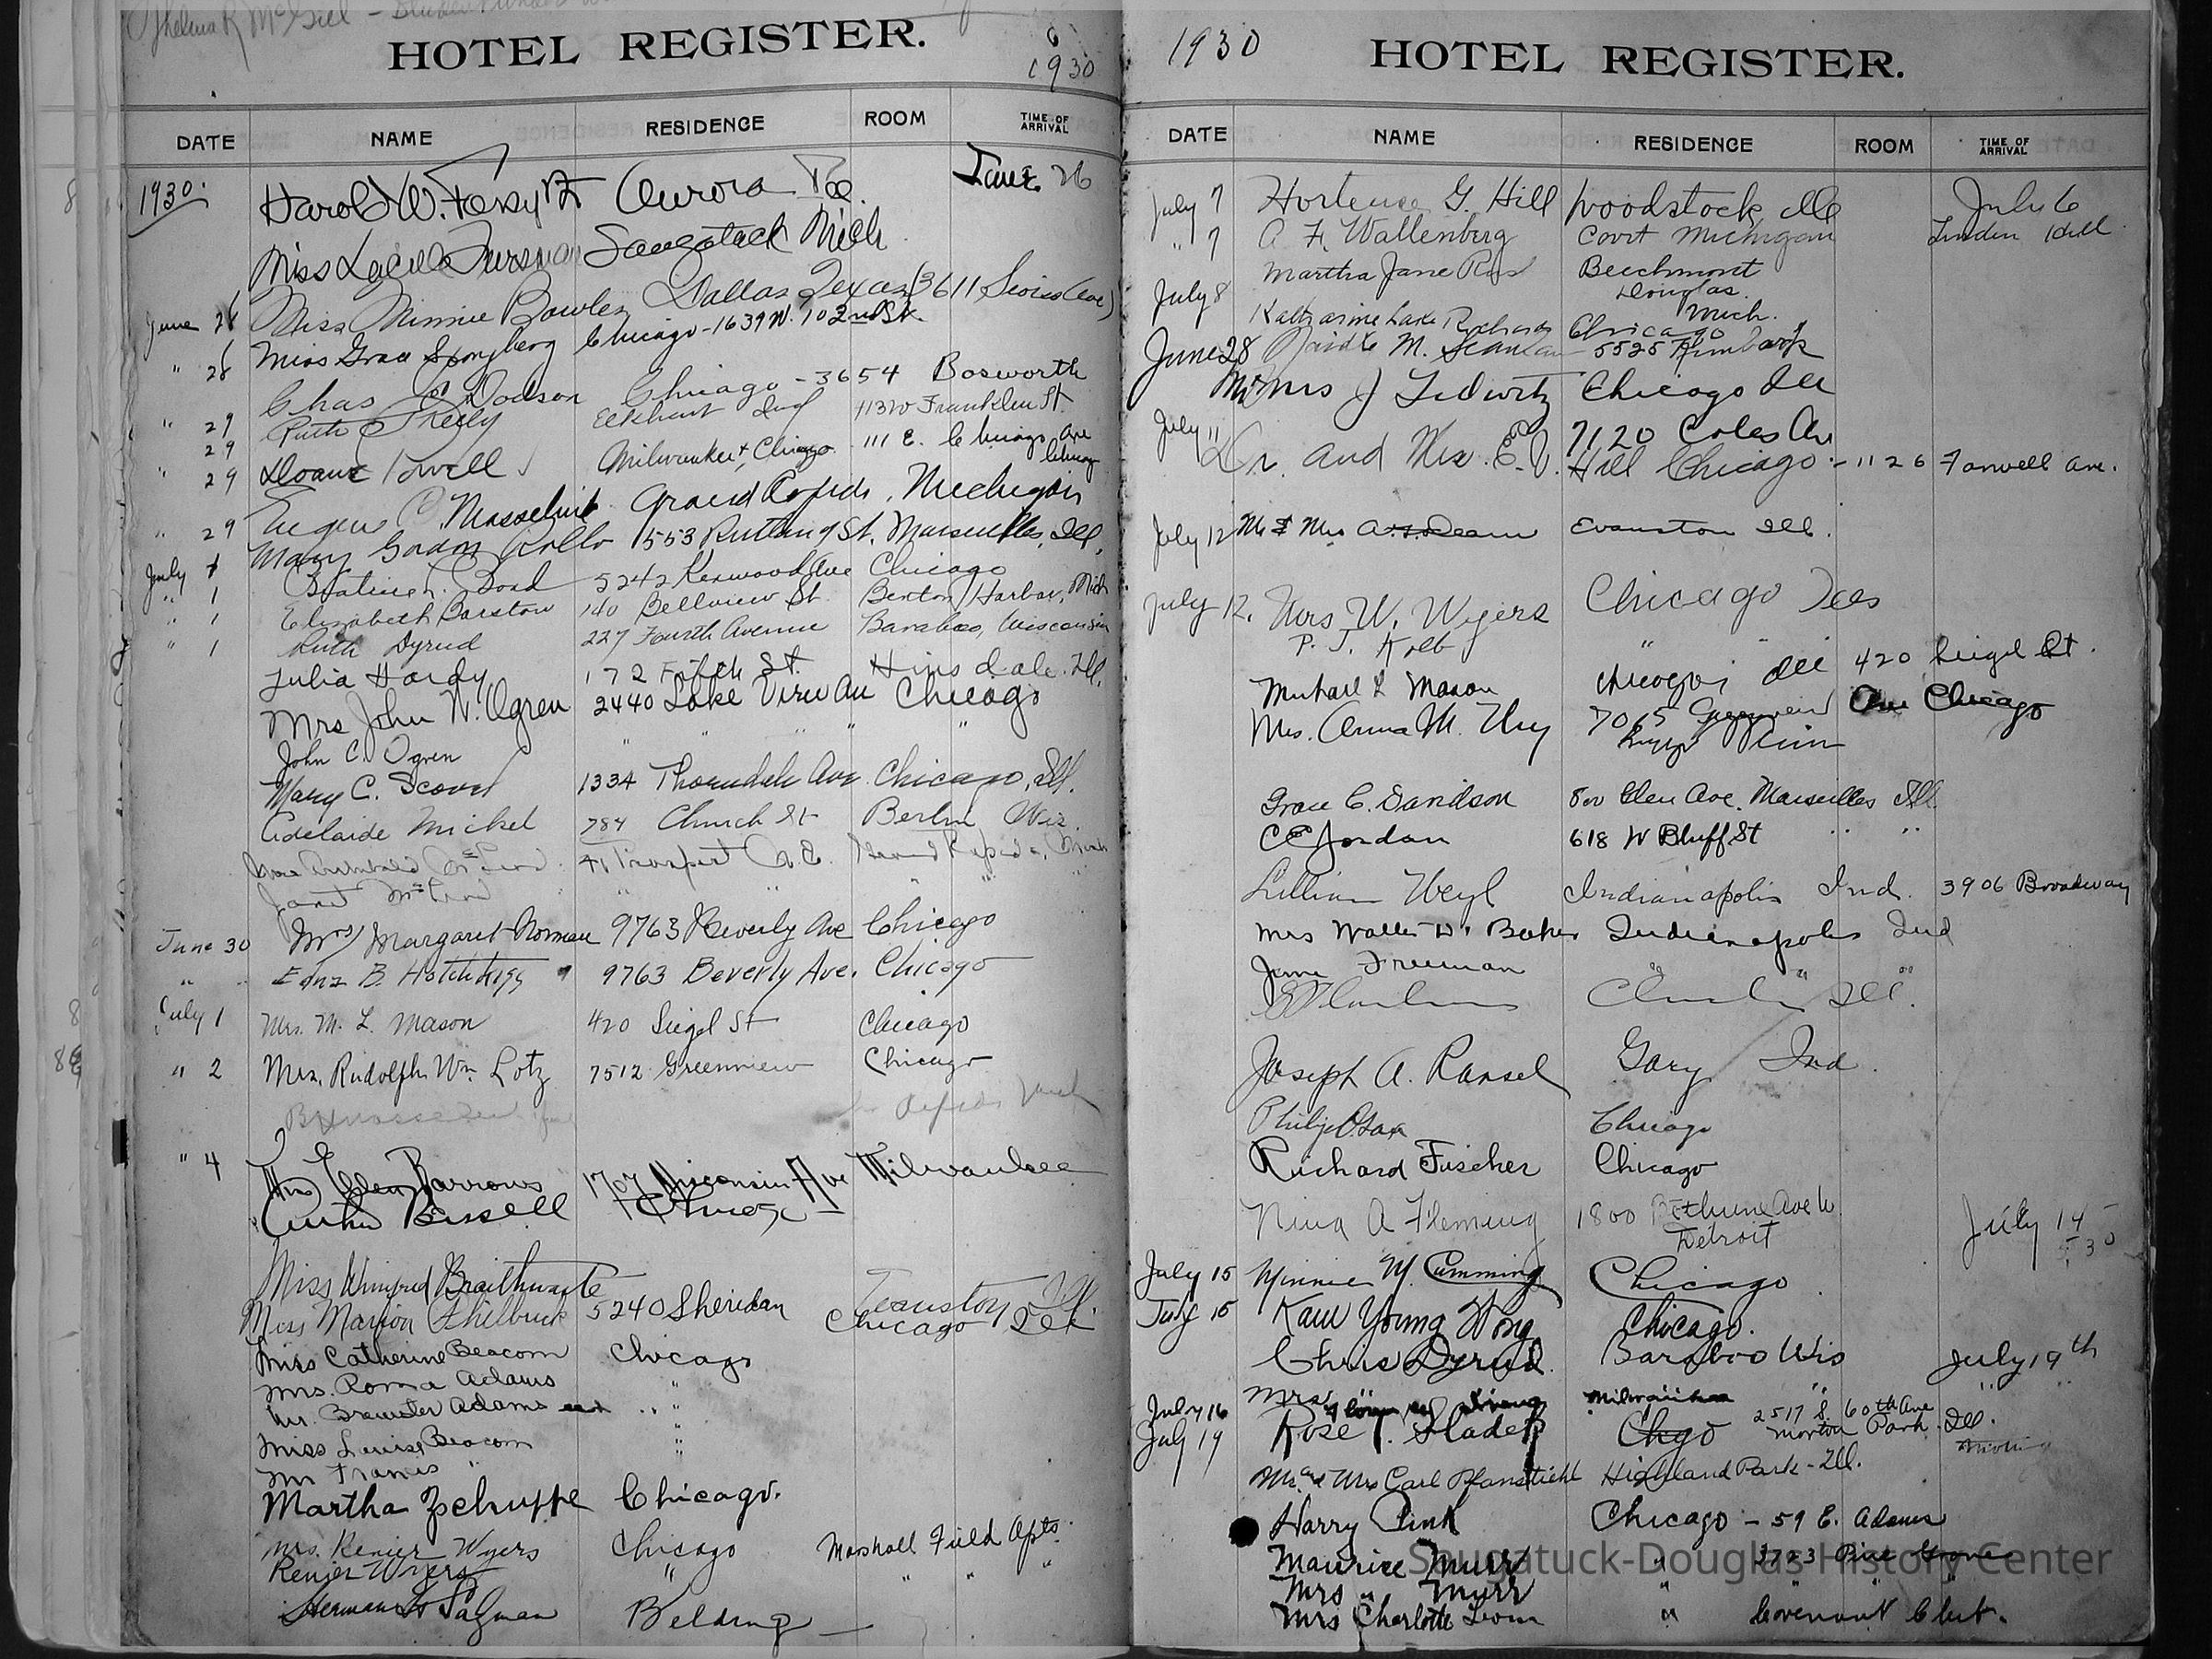 Thelma R McGill
HOTEL REGISTER. 1930
DATE NAME RESIDENCE ROOM TIME OF ARRIVAL
1930. Harold W. Forsyth Aurora Ill. June 26
Miss Saugatuck Mich
June 28 Miss Minnie Bowles Dallas Texas (3611
" 28 Miss Grace Spongberg Chicago - 1639 W. 102nd St.
Chas C Dodson Chicago - 3654 Bosworth
" 29 Ruth Elkhart Ind Franklin St.
29 Doane Powell Milwaukee + Chicago 111 E. Chicago Ave
" 29 Chicago
Eugene C. Masselink Grand Rapids, Michigan
" 29 Mary Gordon Rollo 553 Rutland St. Marseilles, Ill.
July 1 Bond 5242 Kenwood Ave Chicago
" 1 Elizabeth Barstow 140 Bellview St. Benton Harbor, Mich
" 1 Ruth Dyrud 227 Fourth Avenue Baraboo, Wisconsin
" 1 Julia Hardy 172 Fifth St. Hinsdale. Ill.
Mrs John N. Ogren 2440 Lake View Av Chicago
John C. Ogren " " " "
Mary C. Scovel 1334 Thorndale Ave Chicago, Ill.
Adelaide Mickel 784 Church St Berlin Wis.
Mrs Archibald McLeod 41 Prospect N.E. Grand Rapids, Mich
Janet McLeod " " " "
June 30 Mrs Margaret Norman 9763 Beverly Ave Chicago
" " Edna B. Hotchkiss 9763 Beverly Ave. Chicago
July 1 Mrs. M. L. Mason 420 Siegel St Chicago
" 2 Mrs. Rudolph Wm. Lotz 7512 Greenview Chicago
" 4 Mrs Glen Barrows 1707 Wisconsin Ave Milwaukee
Bissell Chicago
Miss Winifred Braithwaite Evanston Ill.
Miss Marion Philbrick 5240 Sheridan Chicago Ill
Miss Catherine Beacom Chicago
Mrs. Roma Adams "
Mr. Brewster Adams " "
Miss Louise Beacom "
Mr Francis " "
Martha Zschuppe Chicago.
Mrs. Renier Wyers Chicago Marshall Field Apts.
Renier Wyers " " " "
Herman Belding
1930 HOTEL REGISTER.
DATE NAME RESIDENCE ROOM TIME OF ARRIVAL
July 7 Hortense G. Hill Woodstock, Ill July 6
" 7 A F. Wallenberg Covert Michigan Linden
Martha Jane Beechmont
July 8 Douglas.
Katharine Lake Mich.
Chicago
June 28 M. Scanlan 5525 Kimbark
Mr Mrs J Ludwitz Chicago Ill
July 11 7120 Coles Av
Dr. and Mrs. E. V. Hill Chicago - 1126 Farwell Ave.
July 12 Mr & Mrs A. S. Dean Evanston Ill.
July 12. Mrs W. Wyers Chicago Ills
P. J. Kolb " "
Michael L Mason Chicago, Ill 420 Siegel St.
Mrs. Anna M. 7065 Greenview Ave Chicago
Grace C. Davidson 800 Glen Ave. Marseilles Ill
C E Jordan 618 W Bluff St " "
Lillian Weyl Indianapolis Ind. 3906 Broadway
Mrs Walter D. Baker Indianapolis Ind
Jane Freeman " " "
Ill.
Joseph A. Ransel Gary Ind.
Philip Chicago
Richard Fischer Chicago
Nina A Fleming 1800 Bethune Ave W. July 14
Detroit 5 30
July 15 Minnie M. Cumming Chicago
July 15 Kam Young Wong Chicago.
Chris Dyrud. Baraboo Wis July 19th
Mrs. " " " "
July 16 Milwaukee 2517 S. 60th Ave
July 19 Rose Chgo Morton Park. Ill.
Mr. and Mrs Carl Pfanstiehl Highland Park - Ill.
Harry Pink Chicago - 59 E. Adams
Maurice Murr " 3723 Pine Grove
Mrs " Murr " " "
Mrs Charlotte " Covenant Club.
Saugatuck-Douglas History Center